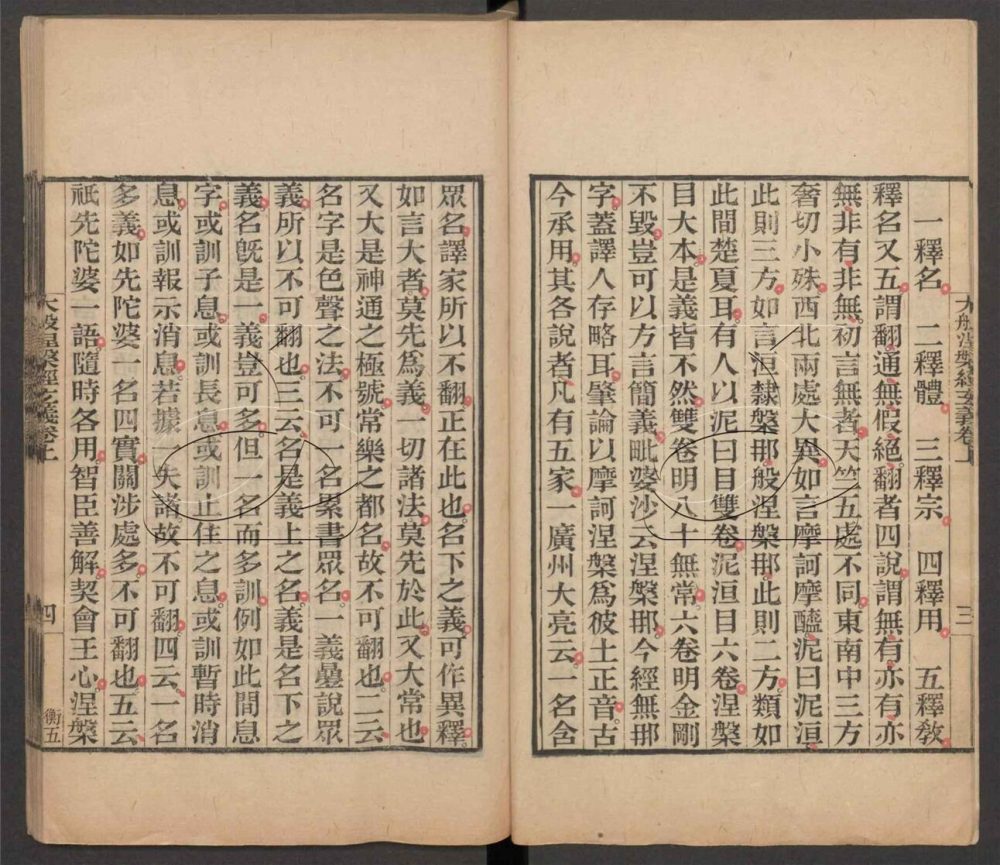 大般涅槃經玄義卷上
三
一釋名 二釋體 三釋宗 四釋用 五釋教
釋名又五謂翻通無假絕翻者四說謂無有亦有亦
無非有非無初言無者天竺五處不同東南中三方
奢切小殊西北兩處大異如言摩訶摩醯泥曰泥洹
此則三方如言洹隸槃那般涅槃那此則二方類如
此間楚夏耳有人以泥曰目雙卷泥洹目六卷涅槃
目大本是義皆不然雙卷明八十無常六卷明金剛
不毀豈可以方言簡義毗婆沙云涅槃那今經無那
字蓋譯人存略耳肇論以摩訶涅槃為彼土正音古
今承用其各說者凡有五家一廣州大亮云一名含
眾名譯家所以不翻正在此也名下之義可作異釋
如言大者莫先為義一切諸法莫先於此又大常也
又大是神通之極號常樂之都名故不可翻也二云
名字是色聲之法不可一名累書眾名一義疊說眾
義所以不可翻也三云名是義上之名義是名下之
義名既是一義豈可多但一名而多訓例如此間息
字或訓子息或訓長息或訓止住之息或訓暫時消
息或訓報示消息若據一失諸故不可翻四云一名
多義如先陀婆一名四實關涉處多不可翻也五云
祇先陀婆一語隨時各用智臣善解契會王心涅槃
大般涅槃經玄義卷上
四
衡五